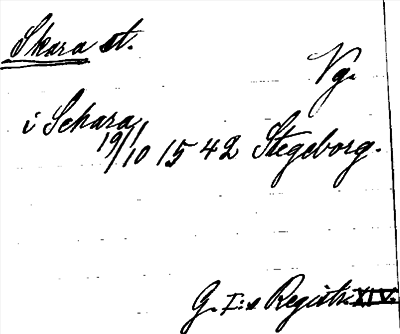 Skara st.
Vg.
i Schara
19/10 1542 Stegeborg.
G. I:s Registr. XIV.